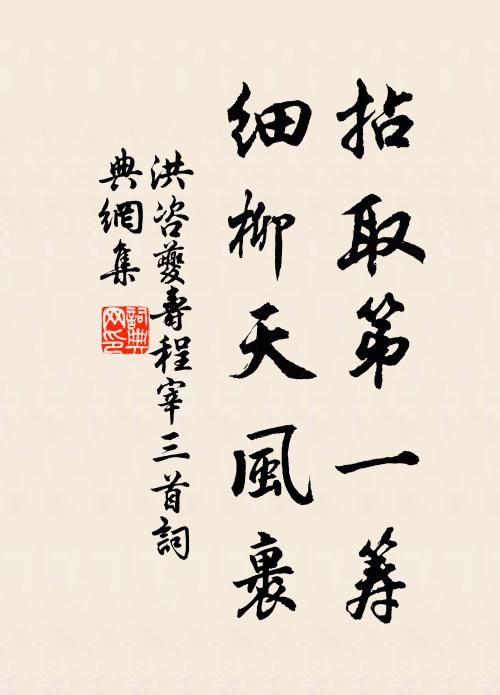 拈取第一筹
細柳天風裏
洪咨夔壽程宰三首詞
典網集
詞典網印